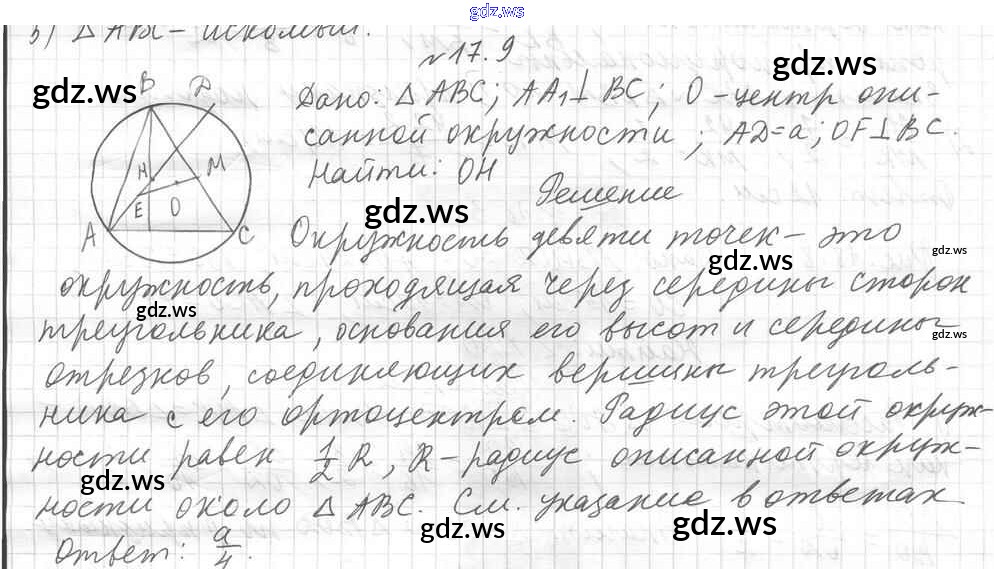 gdz.ws
3) △ABC - искомый.
№17.9
gdz.ws
gdz.ws
B D
Дано: △ABC; AA₁⊥BC; O - центр опи-
санной окружности; AD=a; OF⊥BC.
Найти: OH
H M
E O
A C
Решение
gdz.ws
Окружность девяти точек - это
gdz.ws
gdz.ws
окружность, проходящая через середины сторон
gdz.ws
треугольника, основания его высот и середины
gdz.ws
отрезков, соединяющих вершины треуголь-
ника с его ортоцентром. Радиус этой окруж-
ности равен 1/2 R, R - радиус описанной окруж-
gdz.ws
ности около △ABC. См. указание в ответах
gdz.ws
gdz.ws
Ответ: a/4.